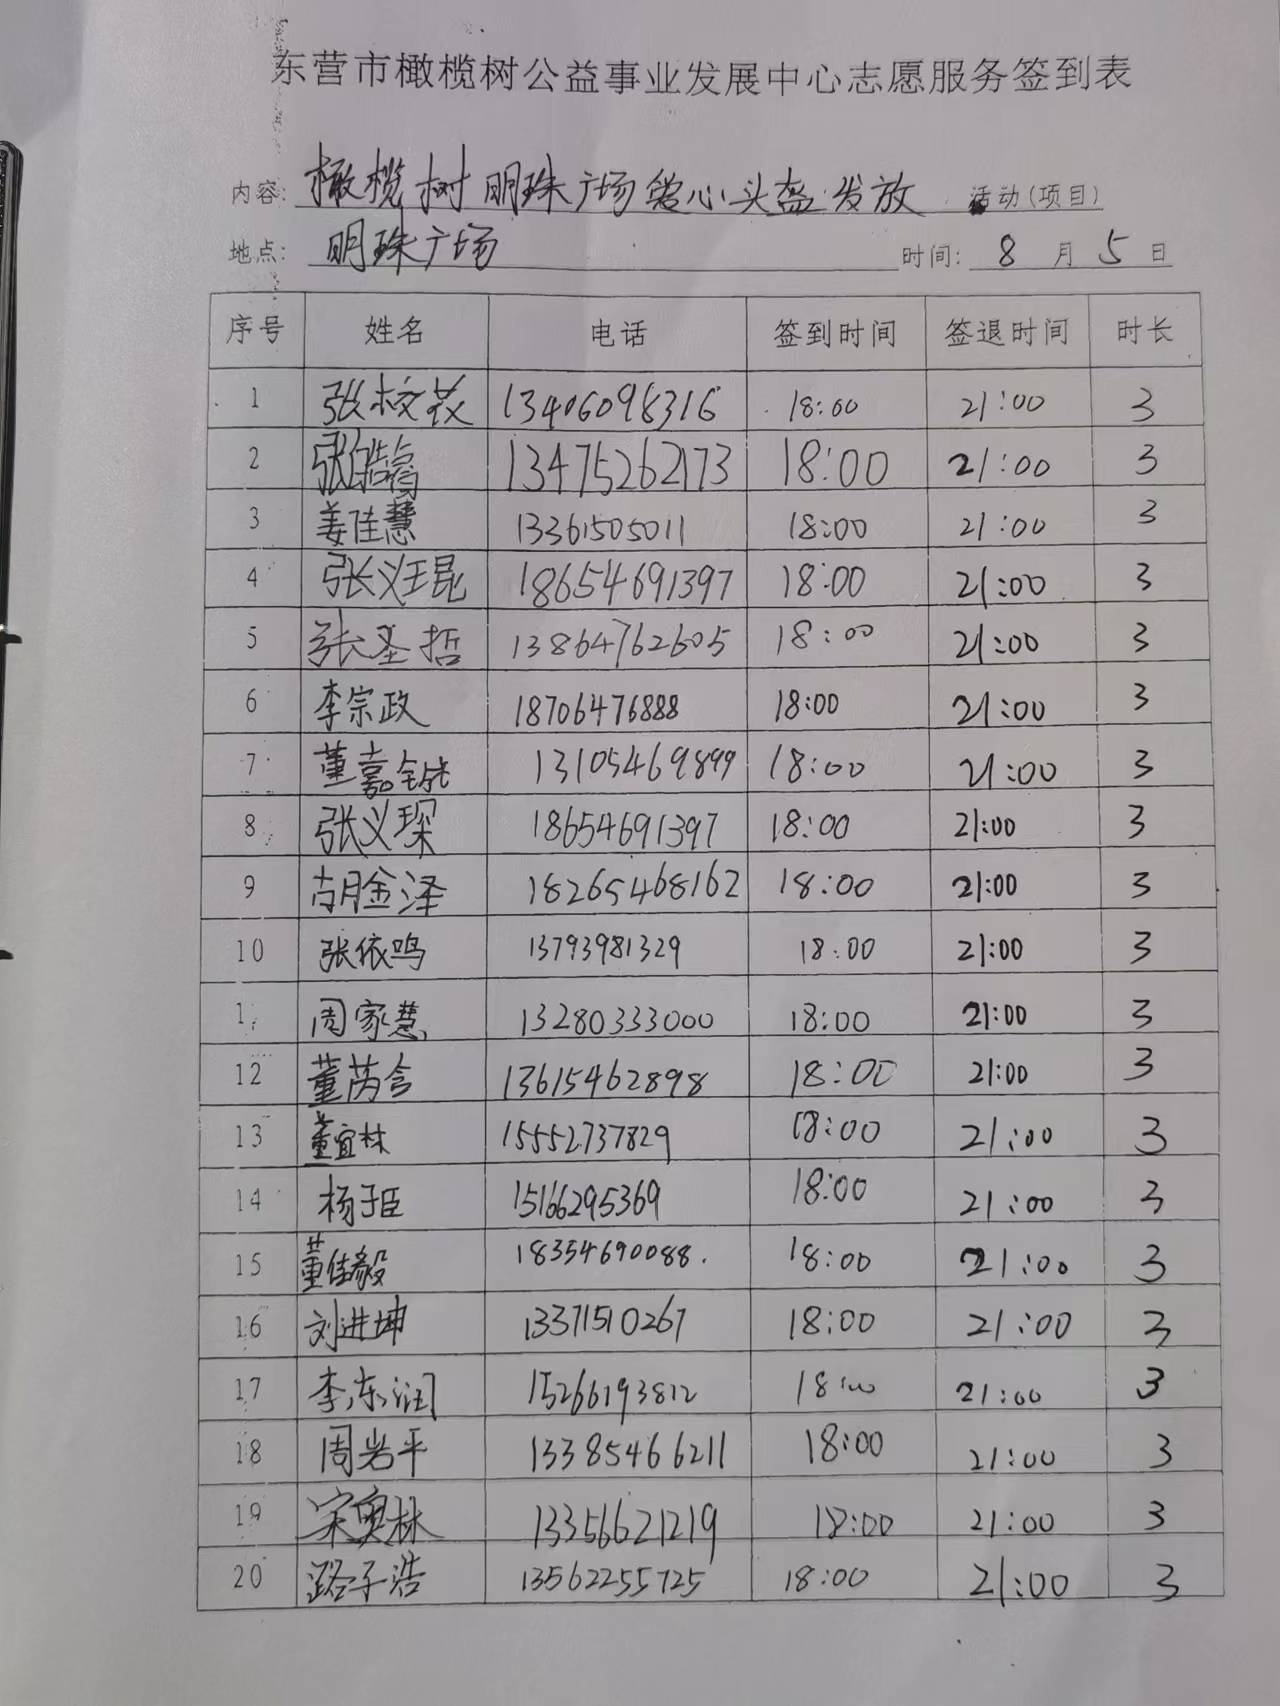 东营市橄榄树公益事业发展中心志愿服务签到表
内容: 橄榄树明珠广场爱心头盔发放 活动(项目)
地点: 明珠广场 时间: 8 月 5 日
序号 姓名 电话 签到时间 签退时间 时长
1 张校 13406098316 18:00 21:00 3
2 张皓 13475262173 18:00 21:00 3
3 姜佳慧 13361505011 18:00 21:00 3
4 张义琨 18654691397 18:00 21:00 3
5 张圣哲 13864762605 18:00 21:00 3
6 李宗政 18706476888 18:00 21:00 3
7 董嘉铖 13105469899 18:00 21:00 3
8 张义琛 18654691397 18:00 21:00 3
9 胡金泽 18265468162 18:00 21:00 3
10 张依鸣 13793981329 18:00 21:00 3
1 周家慧 13280333000 18:00 21:00 3
12 董芮含 13615462898 18:00 21:00 3
13 董宜林 15552737829 18:00 21:00 3
14 杨子臣 15166295369 18:00 21:00 3
15 董佳毅 18354690088. 18:00 21:00 3
16 刘进坤 13371510267 18:00 21:00 3
17 李东润 15266193812 18:00 21:00 3
18 周岩平 13385466211 18:00 21:00 3
19 宋奥林 13356621219 18:00 21:00 3
20 路子浩 13562255725 18:00 21:00 3